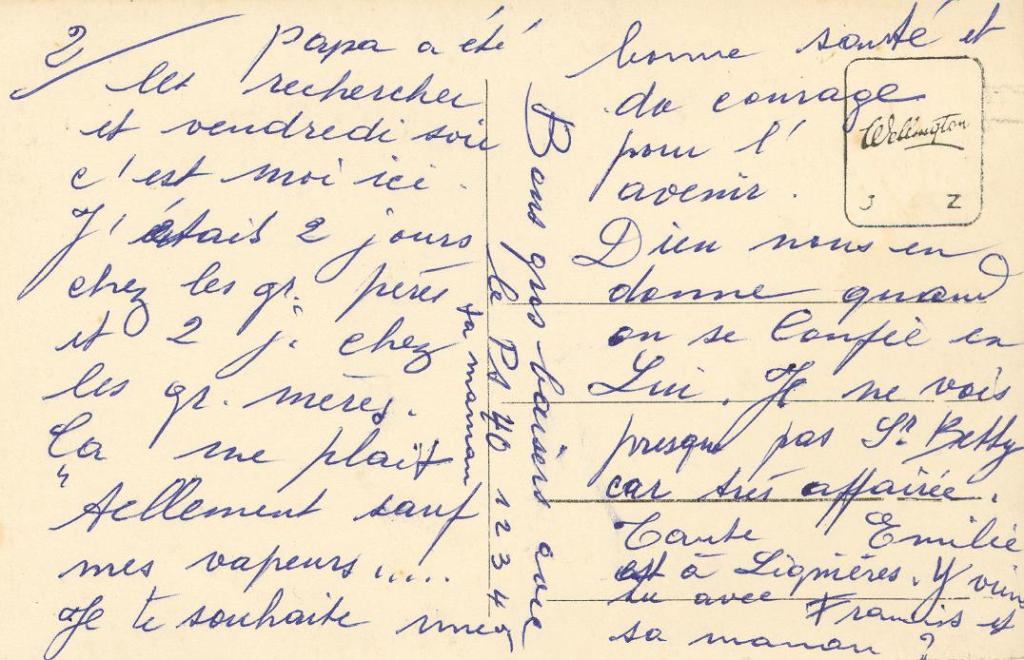 2/ Papa a été
les rechercher
et vendredi soir
c'est moi ici.
J'étais 2 jours
chez les gr. pères
et 2 j. chez
les gr. mères.
Ça me plaît
tellement sauf
mes vapeurs.....
Je te souhaite une
bonne santé et
du courage
pour l'
avenir.
Dieu nous en
donne quand
on se Confie en
Lui. Je ne vois
presque pas Sr Betty
car très affairée.
Tante Emilie
est à Lignières. Y viens
tu avec Francis et
sa maman ?
Bons gros baisers avec
le PS 40 1 2 3 4
ta maman
Wellington
J Z